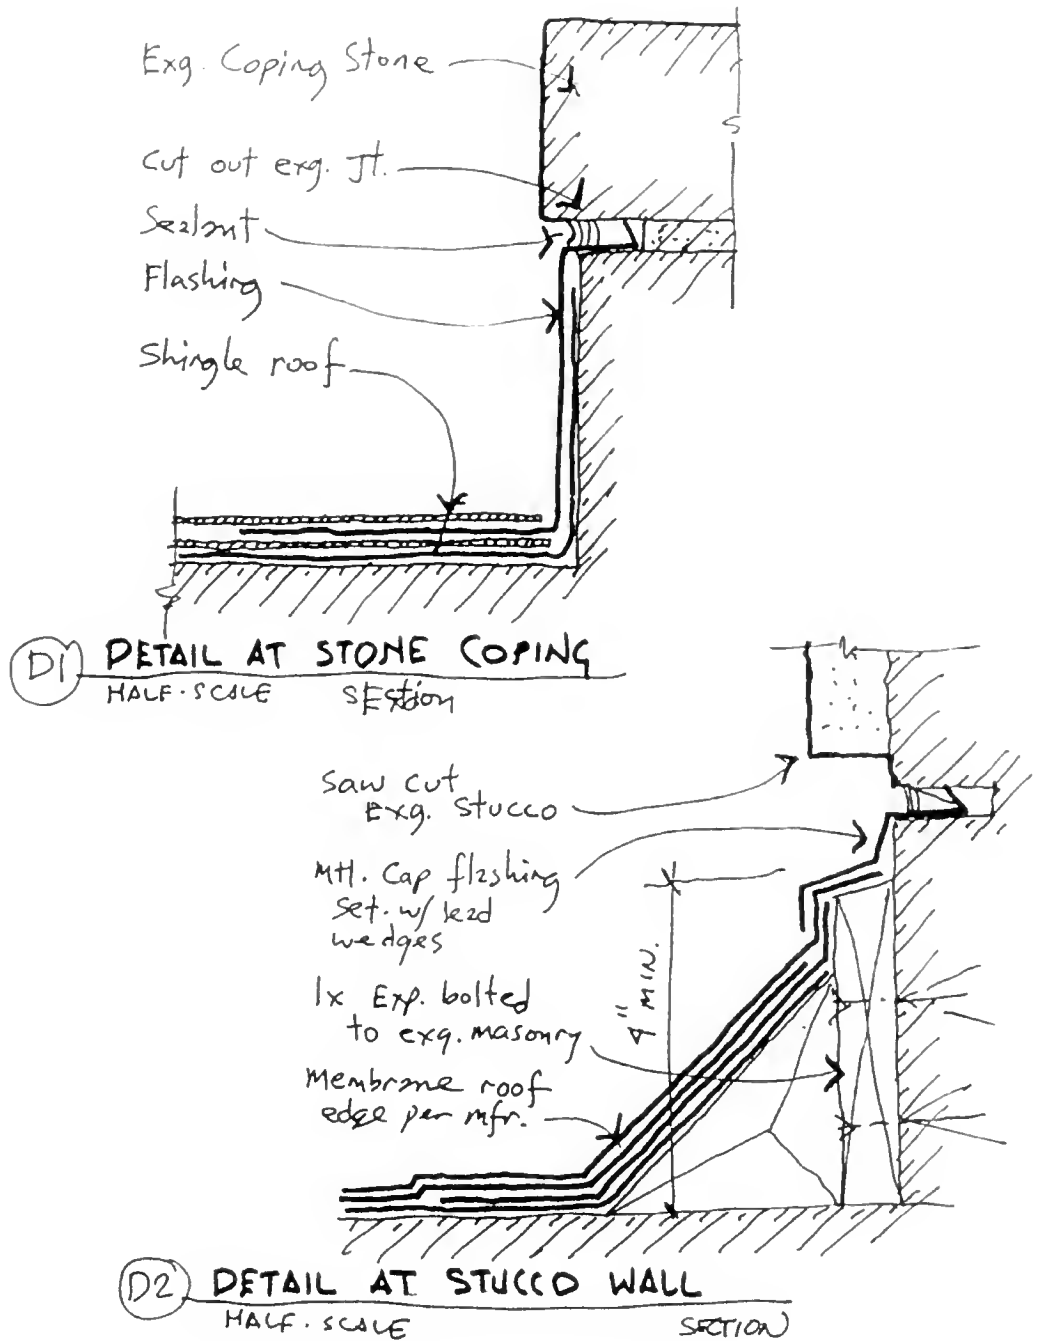 Exg. Coping Stone
Cut out exg. Jt.
Sealant
Flashing
Shingle roof
D1 DETAIL AT STONE COPING
HALF-SCALE SEction
Saw cut
Exg. Stucco
Mtl. Cap flashing
Set. w/ lead
wedges
1x Exp. bolted
to exg. masonry
Membrane roof
edge per mfr.
9" MIN.
D2 DETAIL AT STUCCO WALL
HALF-SCALE SECTION